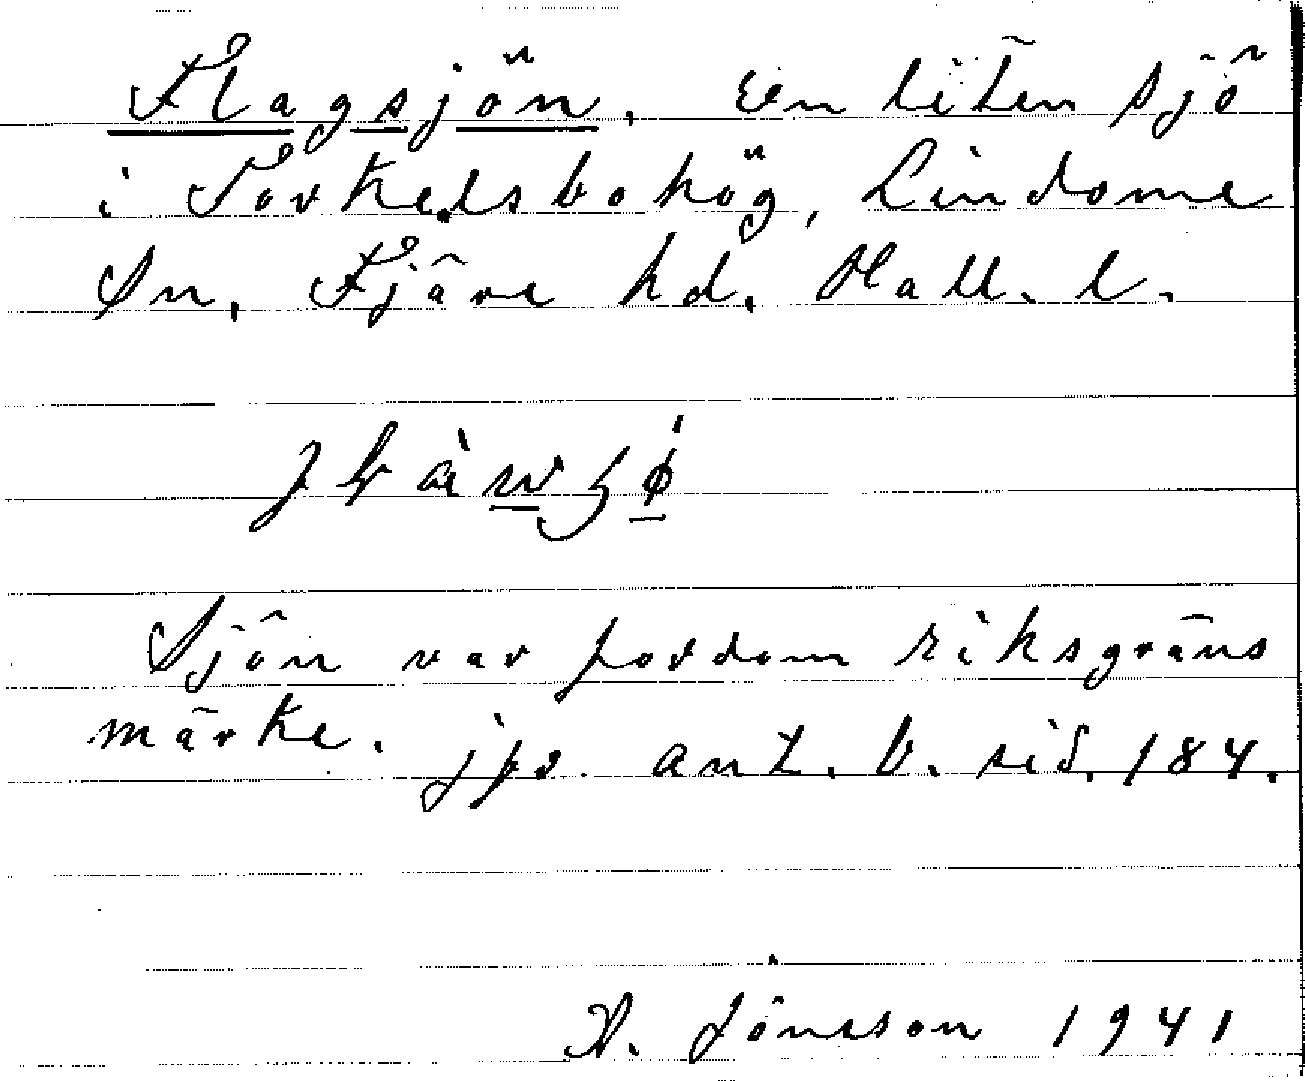 Flagsjön. En liten sjö
i Torkelsbohög, Lindome
Sn. Fjäre hd. Hall. l.
Sjön var fordom riksgräns
märke. jfr. ant. b. sid. 184.
A. Jönsson 1941